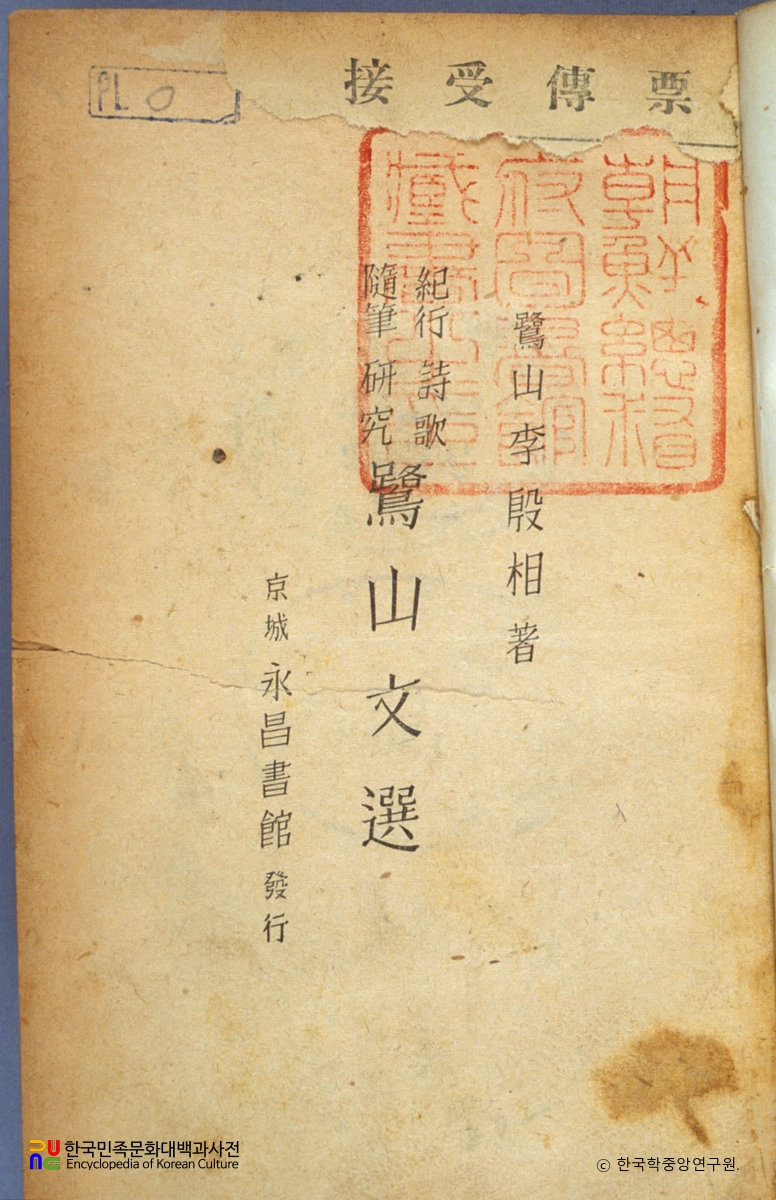 接受傳票
PL 0
朝鮮總督
府圖書館
藏書之印
鷺山李殷相著
紀行 詩歌
隨筆 研究
鷺山文選
京城 永昌書館 發行
한국민족문화대백과사전
Encyclopedia of Korean Culture
© 한국학중앙연구원.